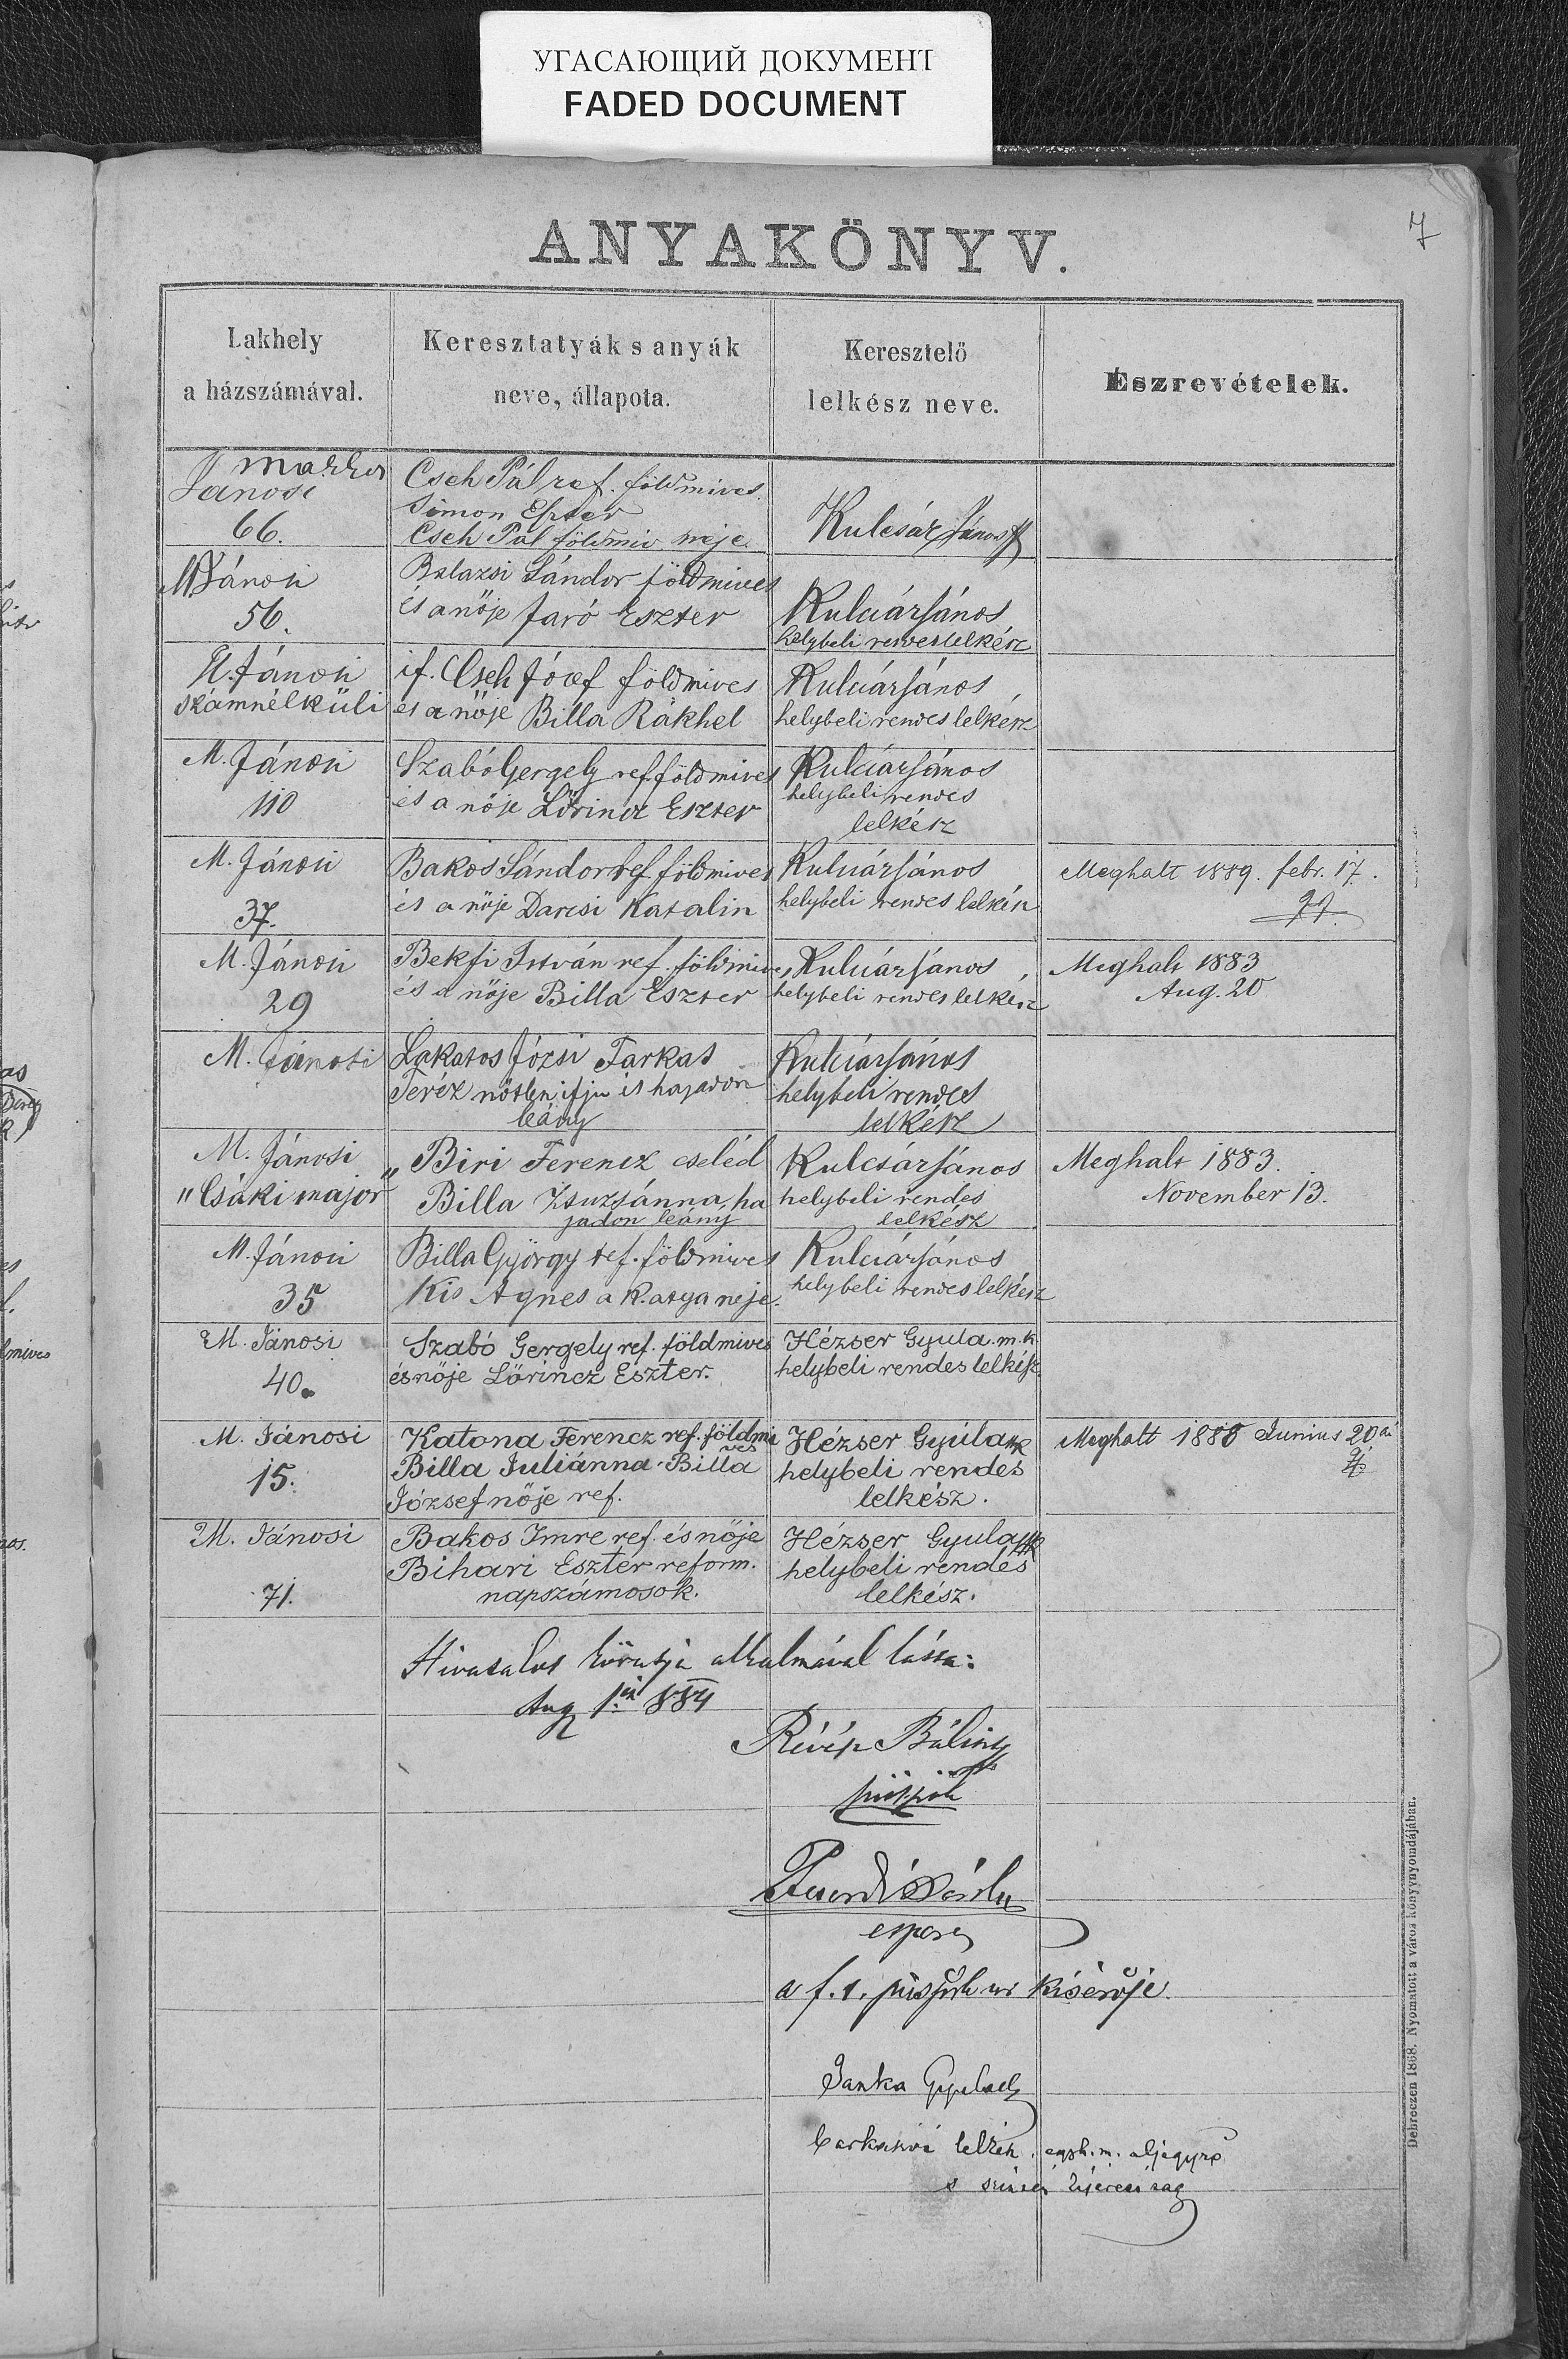 УГАСАЮЩИЙ ДОКУМЕНТ
FADED DOCUMENT
7
ANYAKÖNYV.
Lakhely
a házszámával.
Keresztatyák s anyák
neve, állapota.
Keresztelö
lelkész neve.
Észrevételek.
Jánosi
66.
Cseh Pál ref. földmives.
Simon Eszter
Cseh Pál földmiv. neje.
Kulcsár János
M Jánosi
56.
Balazsi Sándor földmives
és a nöje Jaró Eszter
Kulcsár János
helybeli rendes lelkész
M. Jánosi
számnélküli
if. Cseh Józef földmives
és a nöje Billa Rákhel
Kulcsár János
helybeli rendes lelkész
M. Jánosi
110
Szabó Gergely ref. földmives
és a nöje Lörincz Eszter
Kulcsár János
helybeli rendes
lelkész
M. Jánosi
37.
Bakos Sándor ref földmives
és a nöje Darcsi Katalin
Kulcsár János
helybeli rendes lelkész
Meghalt 1889. febr. 17.
M. Jánosi
29
Bekfi István ref. földmives
és a nöje Billa Eszter
Kulcsár János
helybeli rendes lelkész
Meghalt 1883
Aug. 20
M. Jánosi
Lakatos Józsi Farkas
Teréz nötlen ifju és hajadon
leány
Kulcsár János
helybeli rendes
lelkész
M. Jánosi
"Csáki major"
Biri Ferencz cseléd
Billa Zsuzsánna, ha
jadon leány
Kulcsár János
helybeli rendes
lelkész
Meghalt 1883.
November 13.
M. Jánosi
35
Billa György ref. földmives
Kis Agnes a K. atya neje.
Kulcsár János
helybeli rendes lelkész
M. Jánosi
40.
Szabó Gergely ref. földmives
és nöje Lörincz Eszter.
Hézser Gyula m. k.
helybeli rendes lelkész.
M. Jánosi
15.
Katona Ferencz ref. földmi
ves
Billa Juliánna. Billa
József nöje ref.
Hézser Gyula mk
helybeli rendes
lelkész.
Meghalt 1886 Junius 20án
M. Jánosi
71.
Bakos Imre ref. és nöje
Bihari Eszter reform.
napszámosok.
Hézser Gyula mk
helybeli rendes
lelkész.
Hivatalos körutja alkalmával látta:
Aug 1én 884
Révész Bálint
püspök
esperes
a f. t. püspök ur kisérője.
Janka Gyula
lelkész. egyh. m. aljegyző
s
Debreczen 1868. Nyomatott a város könyvnyomdájában.